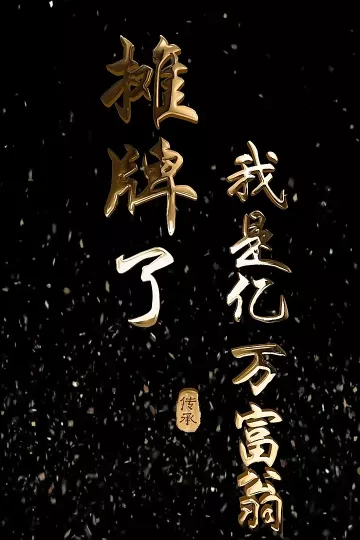 摊牌了
我是亿万富翁
传承